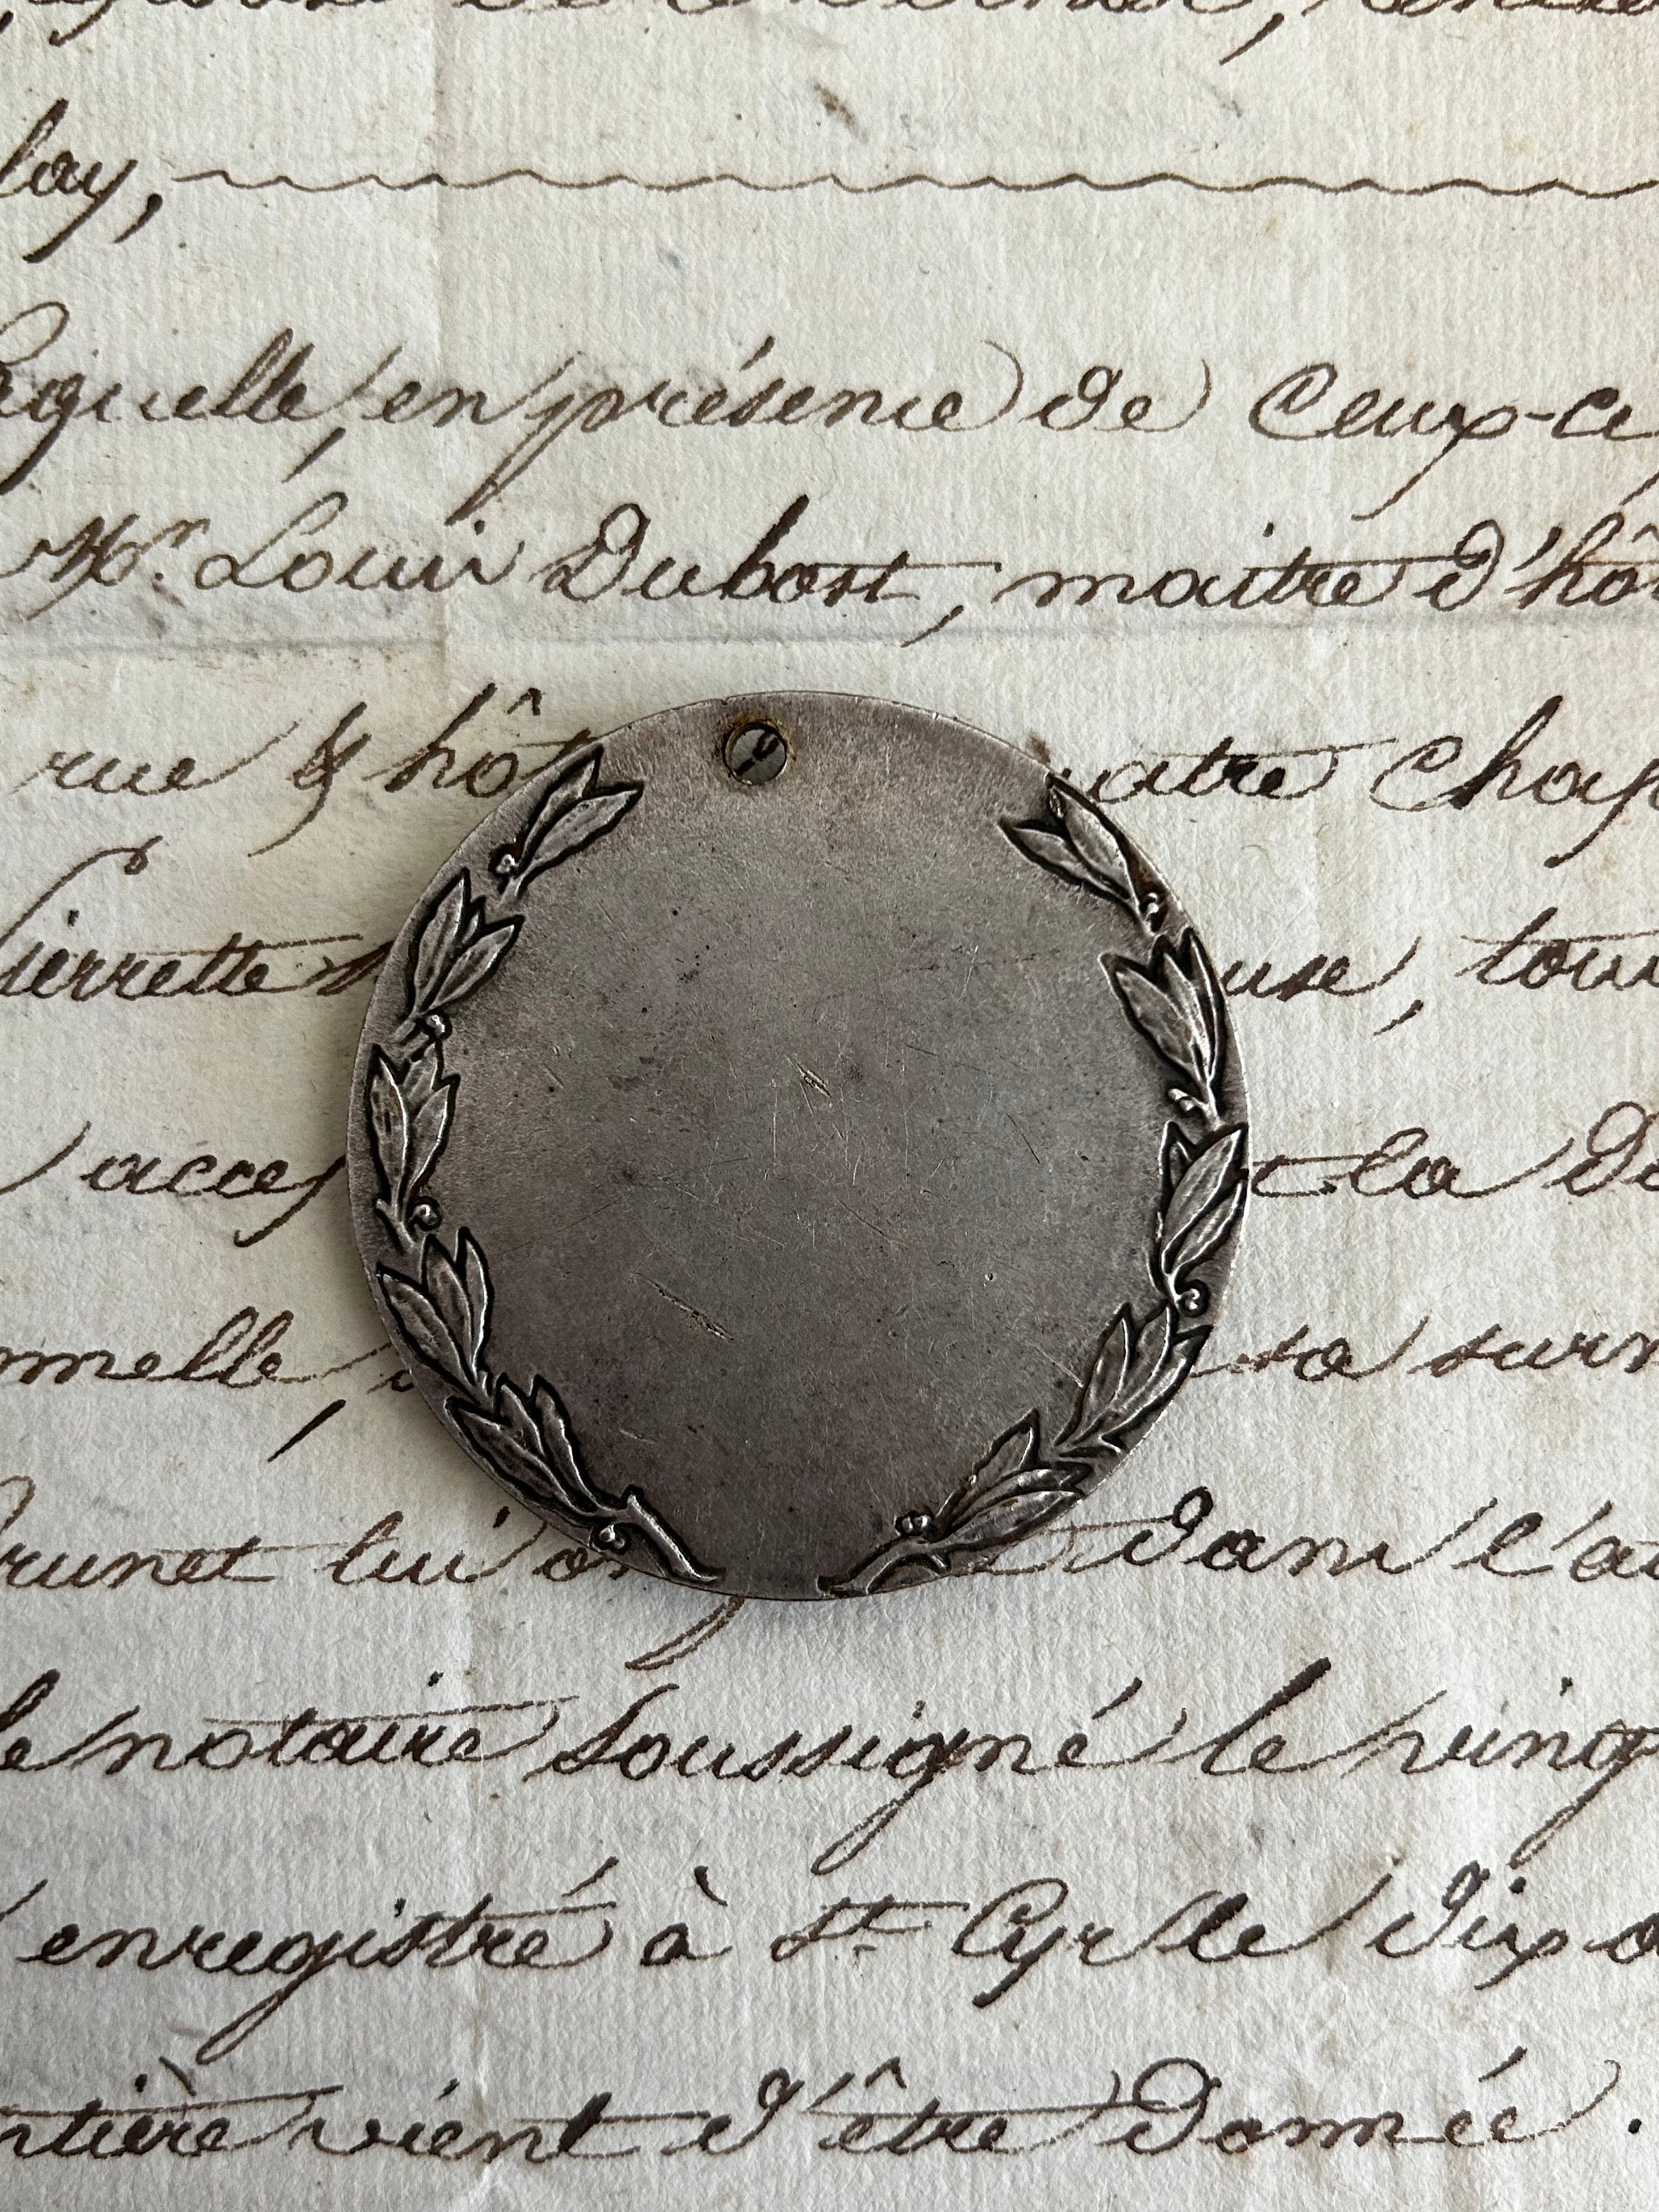 lay,
laquelle, en présence de Ceux-ci,
Mr. Louis Dubost, maitre d'hô
rue & hôt atre Chap
Pierrette use, tou
acces t la De
nnelle, sa surv
Brunet lui Dans l'a
le notaire soussigné le ving
enregistré à St. Cyr le dix
ntière vient d'être Donnée.